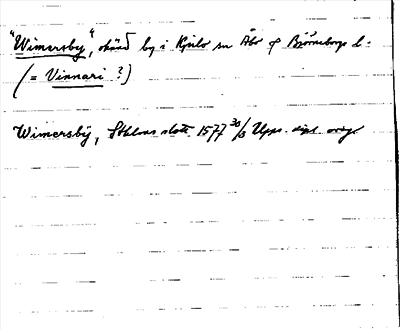 "Wimersby", okänd by i Kjulo sn Åbo o Björneborgs l.
(= Vinnari ?)
Wimersbÿ, Sthlms slott 1577 30/3 Upps. dipl. orig